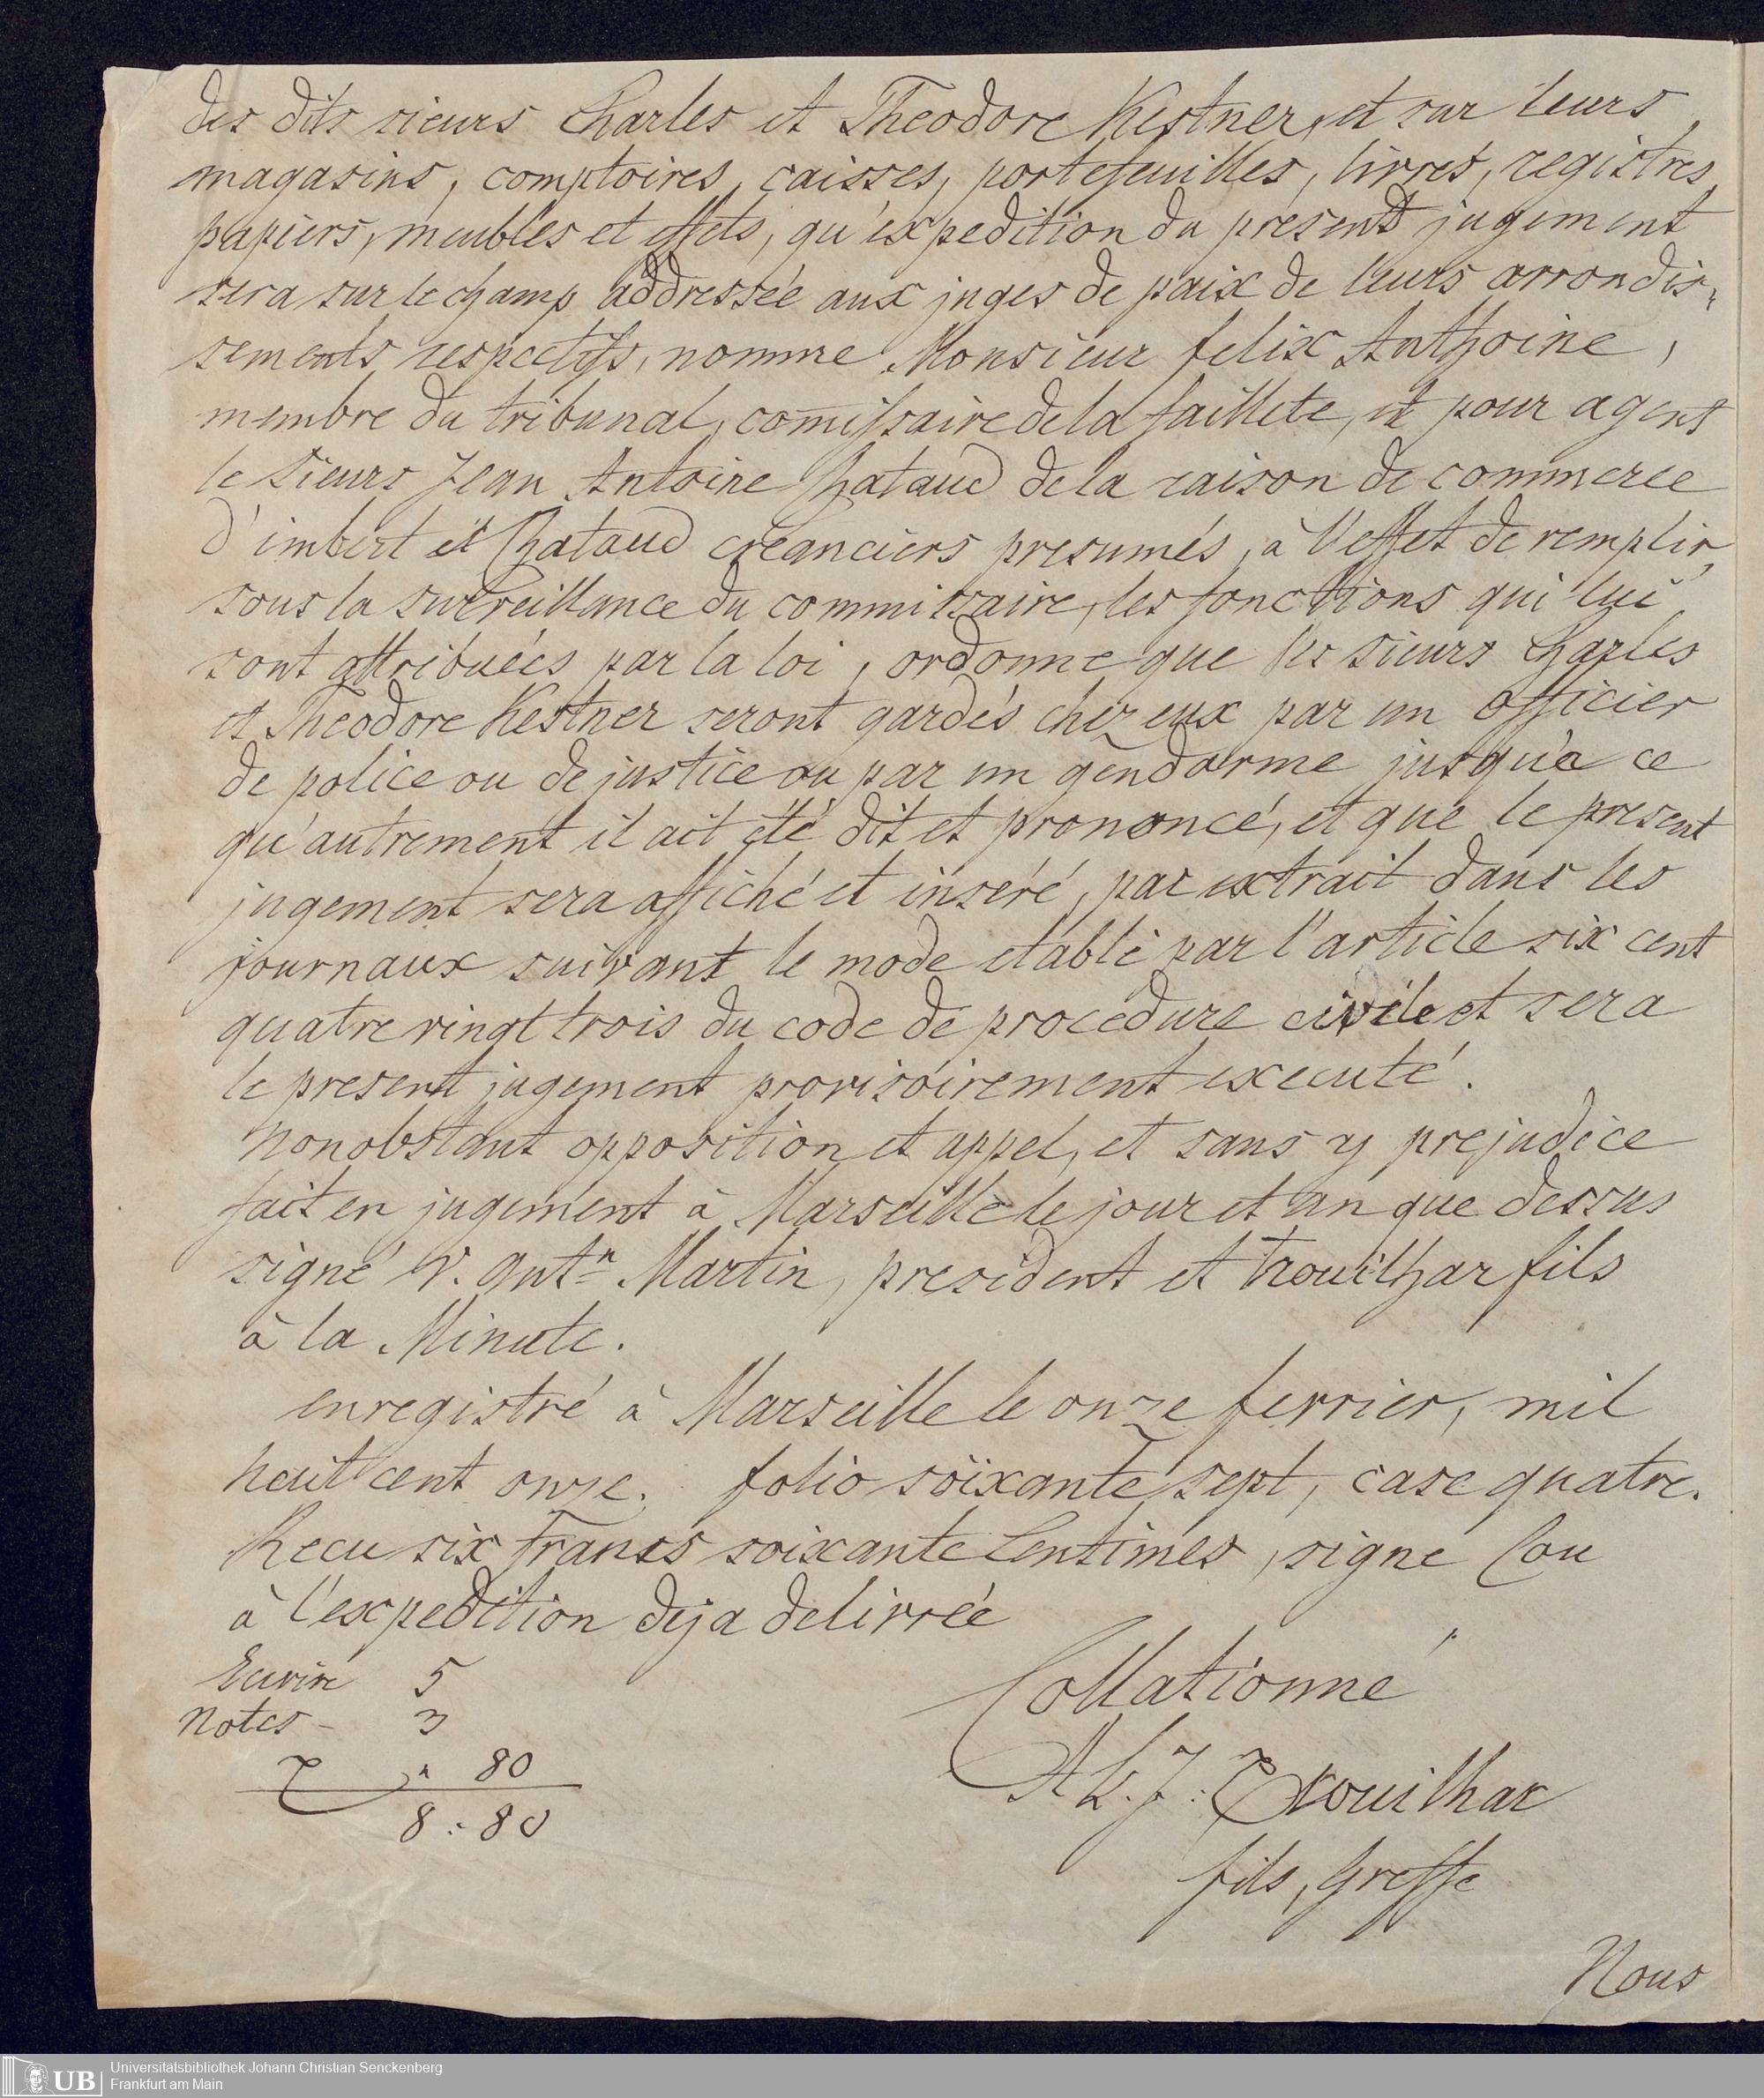 des dits sieurs Charles et Theodore Kestner, et sur leurs
magasins, comptoires, caisses, portefeuilles, livres, registres,
papiers, meubles et effets, qu'expedition du present jugement
sera sur le champ addressée aux juges de paix de leurs arrondis-
sements respectifs, nomme Monsieur felix Anthoine,
membre du tribunal, comissaire de la faillete, et pour agent
le Sieurs Jean Antoine Chataud de la raison de commerce
d'imbert et Chataud créanciers presumés, à l'effet de remplir,
sous la surveillance du commissaire, les fonctions qui lui
sont attribuées par la loi, ordonne que les sieurs Charles
et Theodore Kestner seront gardés chez eux par un officier
de police ou de justice ou par un gendarme jusqu'a ce
qu'autrement il ait été dit et prononcé, et que le present
jugement sera affiché et inséré, par extrait dans les
journaux suivant le mode etabli par l'article six cent
quatre vingt trois du code de procedure civile et sera
le present jugement provisoirement executé.
Nonobstant opposition et appel, et sans y prejudice
fait en jugement à Marseille le jour et an que dessus
signé V. Antn Martin, president et trouilhar fils
à la Minute.
enregistré à Marseille le onze fevrier, mil
huit cent onze. folio soixante sept, case quatre.
Recu six francs soixante Centimes, signé Cou
à l'expedition deja delivrée
Ecrire 5
Notes - 3
80
8 : 80
Collationné
A L. J: Trouilhar
fils, Greffe
Nous
UB
Universitätsbibliothek Johann Christian Senckenberg
Frankfurt am Main